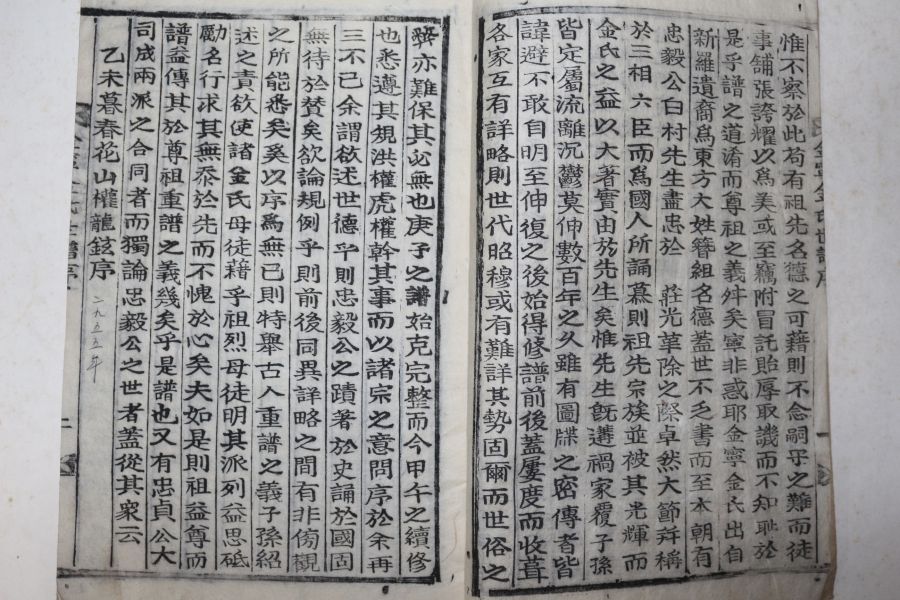 惟不察於此苟有祖先名德之可藉則不念嗣乎之難而徒
事舖張誇耀以爲美或至竊附冒託貽辱取譏而不知耻於
是乎譜之道淆而尊祖之義舛矣寧非惑耶金寧金氏出自
新羅遺裔爲東方大姓簪組名德蓋世不乏書而至本朝有
忠毅公白村先生盡忠於 莊光革除之際卓然大節竝稱
於三相六臣而爲國人所誦慕則祖先宗族並被其光輝而
金氏之益以大著實由於先生矣惟先生旣遘禍家覆子孫
皆定屬流離沉鬱莫伸數百年之久雖有圖牒之密傳者皆
諱避不敢自明至伸復之後始得修譜前後蓋屢度而收葺
各家互有詳略則世代昭穆或有難詳其勢固爾而世俗之
弊亦難保其必無也庚子之譜始克完整而今甲午之續修
也悉遵其規洪權虎權幹其事而以諸宗之意問序於余再
三不已余謂欲述世德乎則忠毅公之蹟著於史誦於國固
無待於贊矣欲論規例乎則前後同異詳略之間有非傍觀
之所能悉矣奚以序爲無已則特舉古人重譜之義子孫紹
述之責欲使諸金氏母徒藉乎祖烈母徒明其派列益思砥
勵名行求其無忝於先而不愧於心矣夫如是則祖益尊而
譜益傳其於尊祖重譜之義幾矣乎是譜也又有忠貞公大
司成兩派之合同者而獨論忠毅公之世者蓋從其衆云
乙未暮春花山權龍鉉序
一九五五年